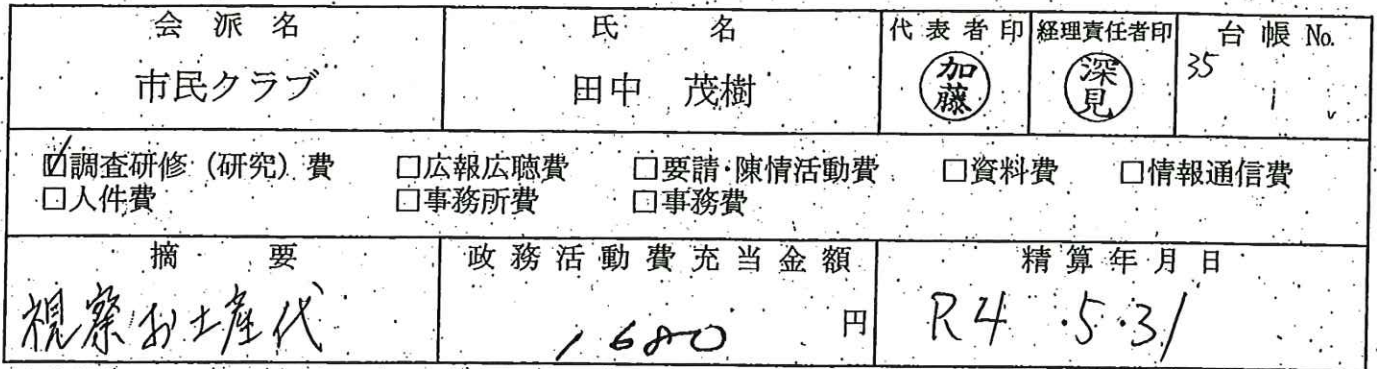 会派名 氏名 代表者印 経理責任者印 台帳No.
市民クラブ 田中 茂樹 加藤 深見 35
1
☑調査研修（研究）費 □広報広聴費 □要請・陳情活動費 □資料費 □情報通信費
□人件費 □事務所費 □事務費
摘要 政務活動費充当金額 精算年月日
視察お土産代 1,680 円 R4.5.31